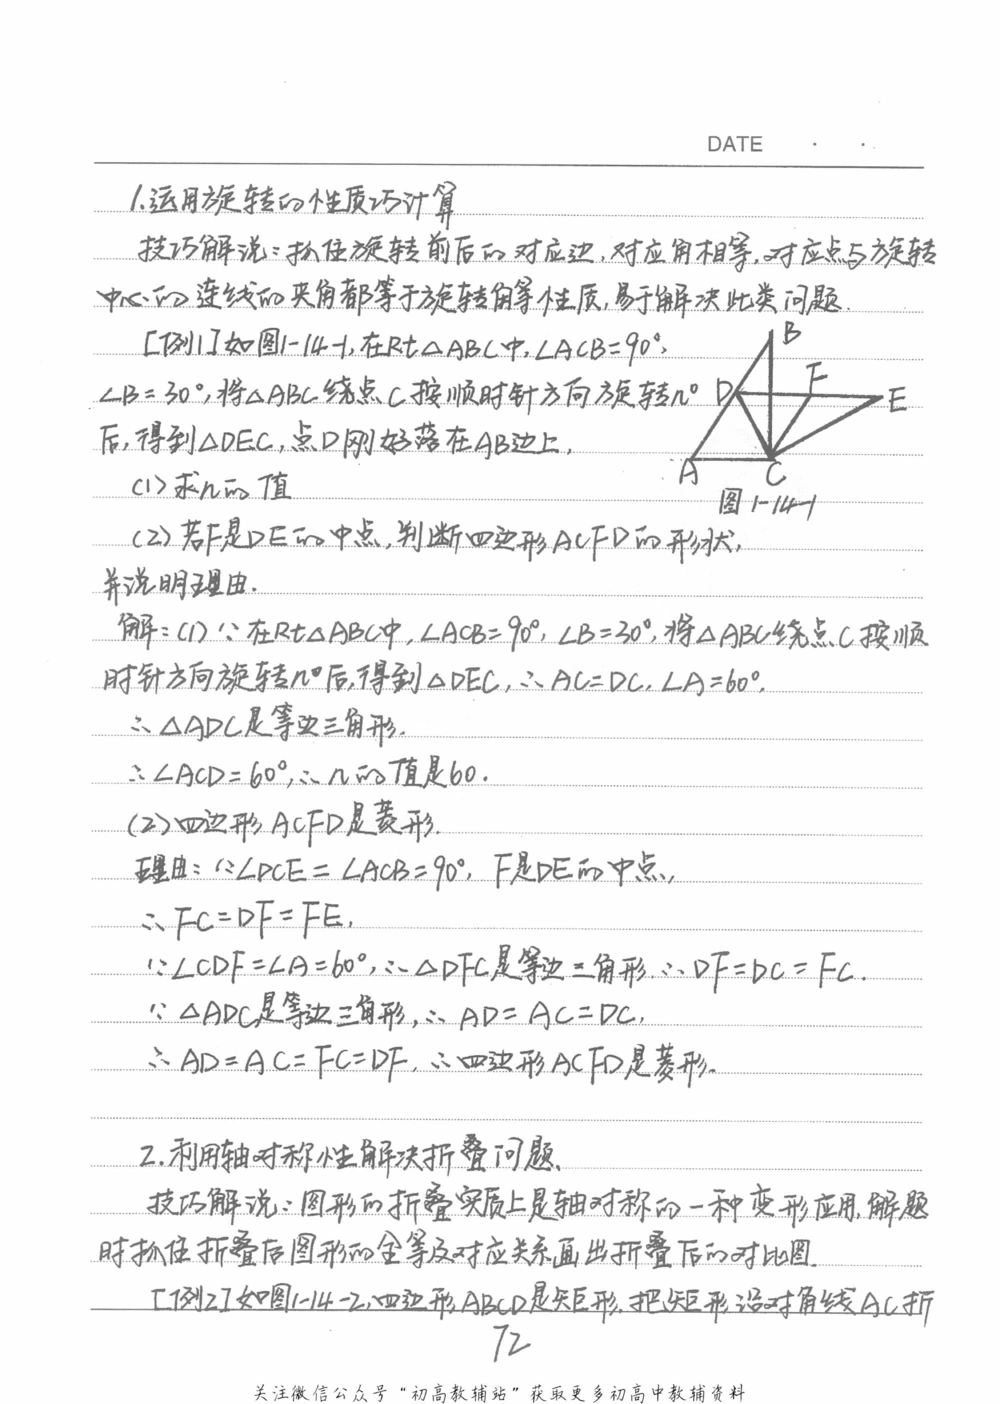 DATE · ·
1.运用旋转的性质巧计算
技巧解说:抓住旋转前后的对应边,对应角相等,对应点与旋转
中心的连线的夹角都等于旋转角等性质,易于解决此类问题.
[例1]如图1-14-1,在Rt△ABC中,∠ACB=90°,
∠B=30°,将△ABC绕点C按顺时针方向旋转n°
后,得到△DEC,点D刚好落在AB边上,
(1)求n的值
(2)若F是DE的中点,判断四边形ACFD的形状,
并说明理由.
B
D F E
A C
图1-14-1
解:(1)∵在Rt△ABC中,∠ACB=90°,∠B=30°,将△ABC绕点C按顺
时针方向旋转n°后,得到△DEC,∴AC=DC,∠A=60°,
∴△ADC是等边三角形.
∴∠ACD=60°,∴n的值是60.
(2)四边形ACFD是菱形.
理由:∵∠DCE=∠ACB=90°,F是DE的中点,
∴FC=DF=FE,
∵∠CDF=∠A=60°,∴△DFC是等边三角形.∴DF=DC=FC.
∵△ADC是等边三角形,∴AD=AC=DC,
∴AD=AC=FC=DF,∴四边形ACFD是菱形.
2.利用轴对称性解决折叠问题.
技巧解说:图形的折叠实质上是轴对称的一种变形应用,解题
时抓住折叠后图形的全等及对应关系画出折叠后的对比图.
[例2]如图1-14-2,四边形ABCD是矩形,把矩形沿对角线AC折
72
关注微信公众号“初高教辅站”获取更多初高中教辅资料